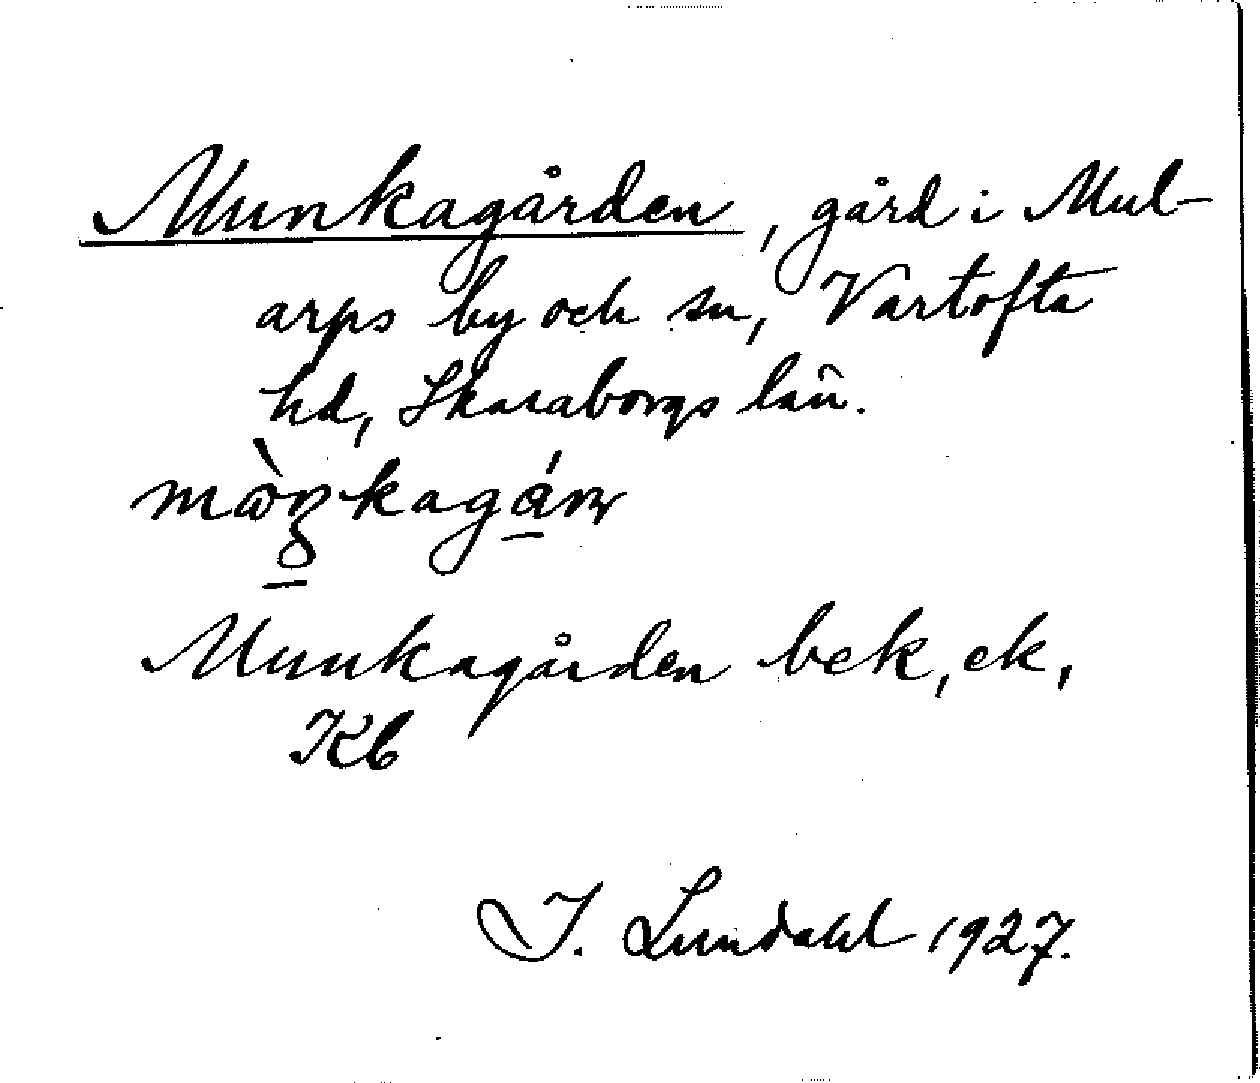 Munkagården, gård i Mul-
arps by och sn, Vartofta
hd, Skaraborgs län.
Munkagården bek, ek,
Kb
I. Lundahl 1927.